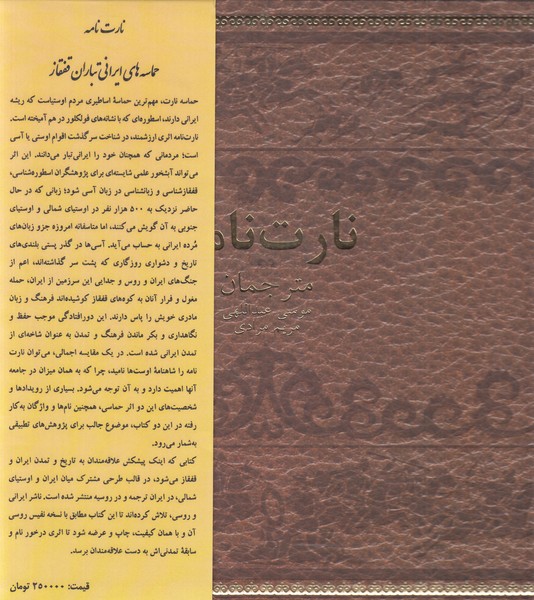 نارت نامه
حماسه های ایرانی تباران قفقاز
حماسه نارت، مهم‌ترین حماسهٔ اساطیری مردم اوستیاست که ریشه
ایرانی دارند، اسطوره‌ای که با نشانه‌های فولکلور در هم آمیخته است.
نارت‌نامه اثری ارزشمند، در شناخت سرگذشت اقوام اوستی یا آسی
است؛ مردمانی که همچنان خود را ایرانی‌تبار می‌دانند. این اثر
می‌تواند آبشخور علمی شایسته‌ای برای پژوهشگران اسطوره‌شناسی،
قفقازشناسی و زبانشناسی در زبان آسی شود؛ زبانی که در حال
حاضر نزدیک به ۵۰۰ هزار نفر در اوستیای شمالی و اوستیای
جنوبی به آن گویش می‌کنند، اما متاسفانه امروزه جزو زبان‌های
مُرده ایرانی به حساب می‌آید. آسی‌ها در گذر پستی بلندی‌های
تاریخ و دشواری روزگاری که پشت سر گذاشته‌اند، اعم از
جنگ‌های ایران و روس و جدایی این سرزمین از ایران، حمله
مغول و فرار آنان به کوه‌های قفقاز کوشیده‌اند فرهنگ و زبان
مادری خویش را پاس دارند. این دورافتادگی موجب حفظ و
نگاهداری و بکر ماندن فرهنگ و تمدن به عنوان شاخه‌ای از
تمدن ایرانی شده است. در یک مقایسه اجمالی، می‌توان نارت
نامه را شاهنامهٔ اوست‌ها نامید، چرا که به همان میزان در جامعه
آنها اهمیت دارد و به آن توجه می‌شود. بسیاری از رویدادها و
شخصیت‌های این دو اثر حماسی، همچنین نام‌ها و واژگان به‌کار
رفته در این دو کتاب، موضوع جالب برای پژوهش‌های تطبیقی
به‌شمار می‌رود.
کتابی که اینک پیشکش علاقه‌مندان به تاریخ و تمدن ایران و
قفقاز می‌شود، در قالب طرحی مشترک میان ایران و اوستیای
شمالی، در ایران ترجمه و در روسیه منتشر شده است. ناشر ایرانی
و روسی، تلاش کرده‌اند تا این کتاب مطابق با نسخه نفیس روسی
آن و با همان کیفیت، چاپ و عرضه شود تا اثری درخور نام و
سابقهٔ تمدنی‌اش به دست علاقه‌مندان برسد.
قیمت: ۳۵۰۰۰۰ تومان
نارت‌نامه
مترجمان
موسی عبداللهی
مریم مرادی